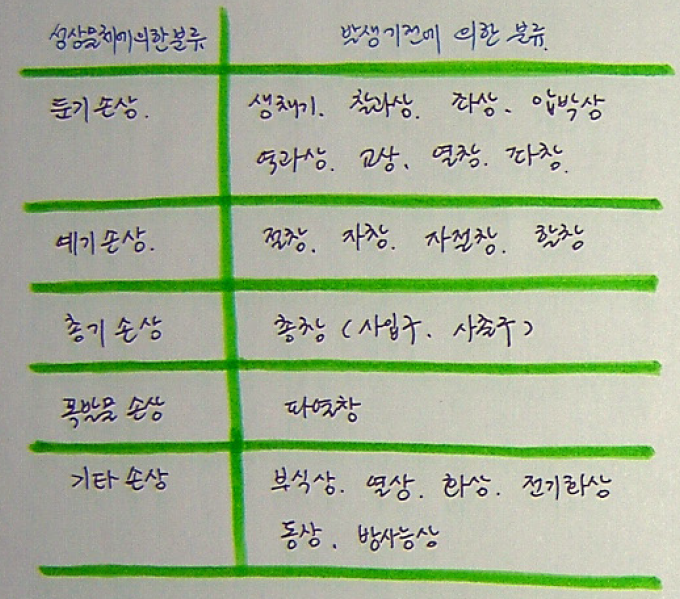 성상물체에의한분류 발생기전에 의한 분류.
둔기손상. 생채기. 찰과상. 좌상. 압박상
역과상. 교상. 열창. 좌창.
예기손상. 절창. 자창. 자절창. 할창
총기손상 총창 (사입구. 사출구)
폭발물 손상 파열창
기타손상 부식상. 열상. 화상. 전기화상
동상. 방사능상